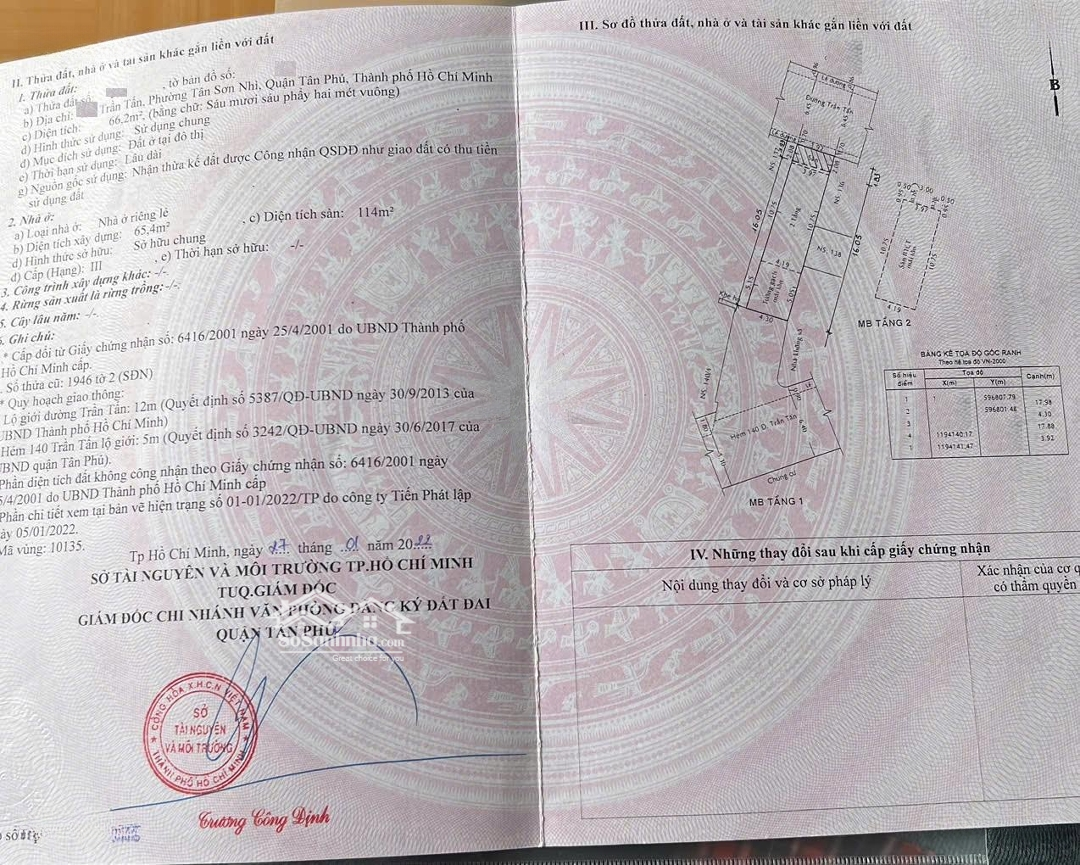 II. Thửa đất, nhà ở và tài sản khác gắn liền với đất
1. Thửa đất:
a) Thửa đất số: , tờ bản đồ số:
b) Địa chỉ: Trần Tấn, Phường Tân Sơn Nhì, Quận Tân Phú, Thành phố Hồ Chí Minh
c) Diện tích: 66.2m², (bằng chữ: Sáu mươi sáu phẩy hai mét vuông)
d) Hình thức sử dụng: Sử dụng chung
đ) Mục đích sử dụng: Đất ở tại đô thị
e) Thời hạn sử dụng: Lâu dài
g) Nguồn gốc sử dụng: Nhận thừa kế đất được Công nhận QSDĐ như giao đất có thu tiền
sử dụng đất
2. Nhà ở:
a) Loại nhà ở: Nhà ở riêng lẻ
b) Diện tích xây dựng: 65,4m² , c) Diện tích sàn: 114m²
d) Hình thức sở hữu: Sở hữu chung
đ) Cấp (Hạng): III , e) Thời hạn sở hữu: -/-
3. Công trình xây dựng khác: -/-.
4. Rừng sản xuất là rừng trồng: -/-.
5. Cây lâu năm: -/-.
6. Ghi chú:
* Cấp đổi từ Giấy chứng nhận số: 6416/2001 ngày 25/4/2001 do UBND Thành phố
Hồ Chí Minh cấp.
Số thửa cũ: 1946 tờ 2 (SĐN)
* Quy hoạch giao thông:
Lộ giới đường Trần Tấn: 12m (Quyết định số 5387/QĐ-UBND ngày 30/9/2013 của
UBND Thành phố Hồ Chí Minh)
Hẻm 140 Trần Tấn lộ giới: 5m (Quyết định số 3242/QĐ-UBND ngày 30/6/2017 của
UBND quận Tân Phú).
Phần diện tích đất không công nhận theo Giấy chứng nhận số: 6416/2001 ngày
5/4/2001 do UBND Thành phố Hồ Chí Minh cấp
Phần chi tiết xem tại bản vẽ hiện trạng số 01-01/2022/TP do công ty Tiến Phát lập
ày 05/01/2022.
Mã vùng: 10135.
Tp Hồ Chí Minh, ngày 27 tháng 01 năm 2022
SỞ TÀI NGUYÊN VÀ MÔI TRƯỜNG TP.HỒ CHÍ MINH
TUQ.GIÁM ĐỐC
GIÁM ĐỐC CHI NHÁNH VĂN PHÒNG ĐĂNG KÝ ĐẤT ĐAI
QUẬN TÂN PHÚ
Great choice for you
CỘNG HÒA X.H.C.N VIỆT NAM
SỞ
TÀI NGUYÊN
VÀ MÔI TRƯỜNG
THÀNH PHỐ HỒ CHÍ MINH
Trương Công Định
III. Sơ đồ thửa đất, nhà ở và tài sản khác gắn liền với đất
B
Lề đường
Đường Trần Tấn
6.45
6.45
Lề đường
NS. 132
NS. 136
16.05
10.75
2 tầng
10.75
16.05
NS. 138
4.19
5.15
Tường gạch
mái tôn
5.05
4.30
Khe hở
Nhà không số
NS. 140/4
Hẻm 140 Đ. Trần Tấn
Chung cư
MB TẦNG 1
0.50
3.00
0.50
10.75
Sàn BTCT
mái tôn
10.75
4.19
MB TẦNG 2
BẢNG KÊ TỌA ĐỘ GÓC RANH
Theo hệ tọa độ VN-2000
Số hiệu điểm Tọa độ Cạnh(m)
X(m) Y(m)
1 596807.79
17.98
2 596801.48
4.30
3
17.88
4 1194140.17
5.92
1 1194141.47
IV. Những thay đổi sau khi cấp giấy chứng nhận
Nội dung thay đổi và cơ sở pháp lý
Xác nhận của cơ q
có thẩm quyền